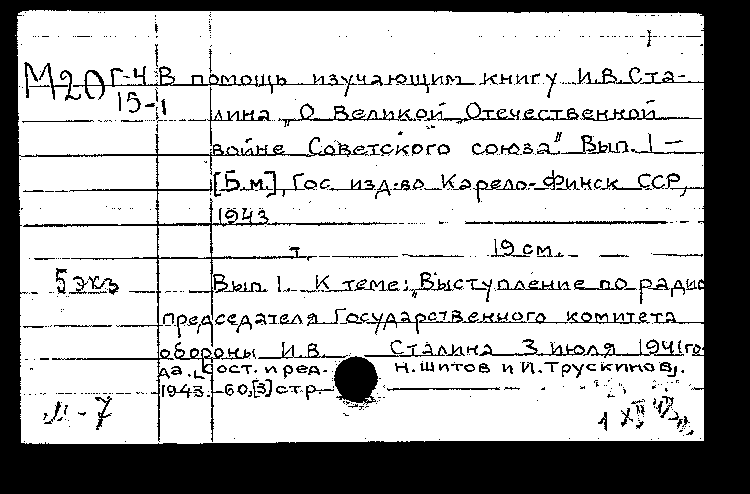 М20 Г-4 В помощь изучающим книгу И.В.Ста-
15-1 лина „О Великой Отечественной
войне Советского союза" Вып. 1 —
[Б.м.], Гос. изд-во Карело-Финск ССР,
1943
т. 19 см.
5 экз Вып. 1. К теме: „Выступление по радио
председателя Государственного комитета
обороны И.В. Сталина 3 июля 1941 го-
да. Сост. и ред. Н.Шитов и И.Трускинов.
1943. -60,[3] стр.
М-7